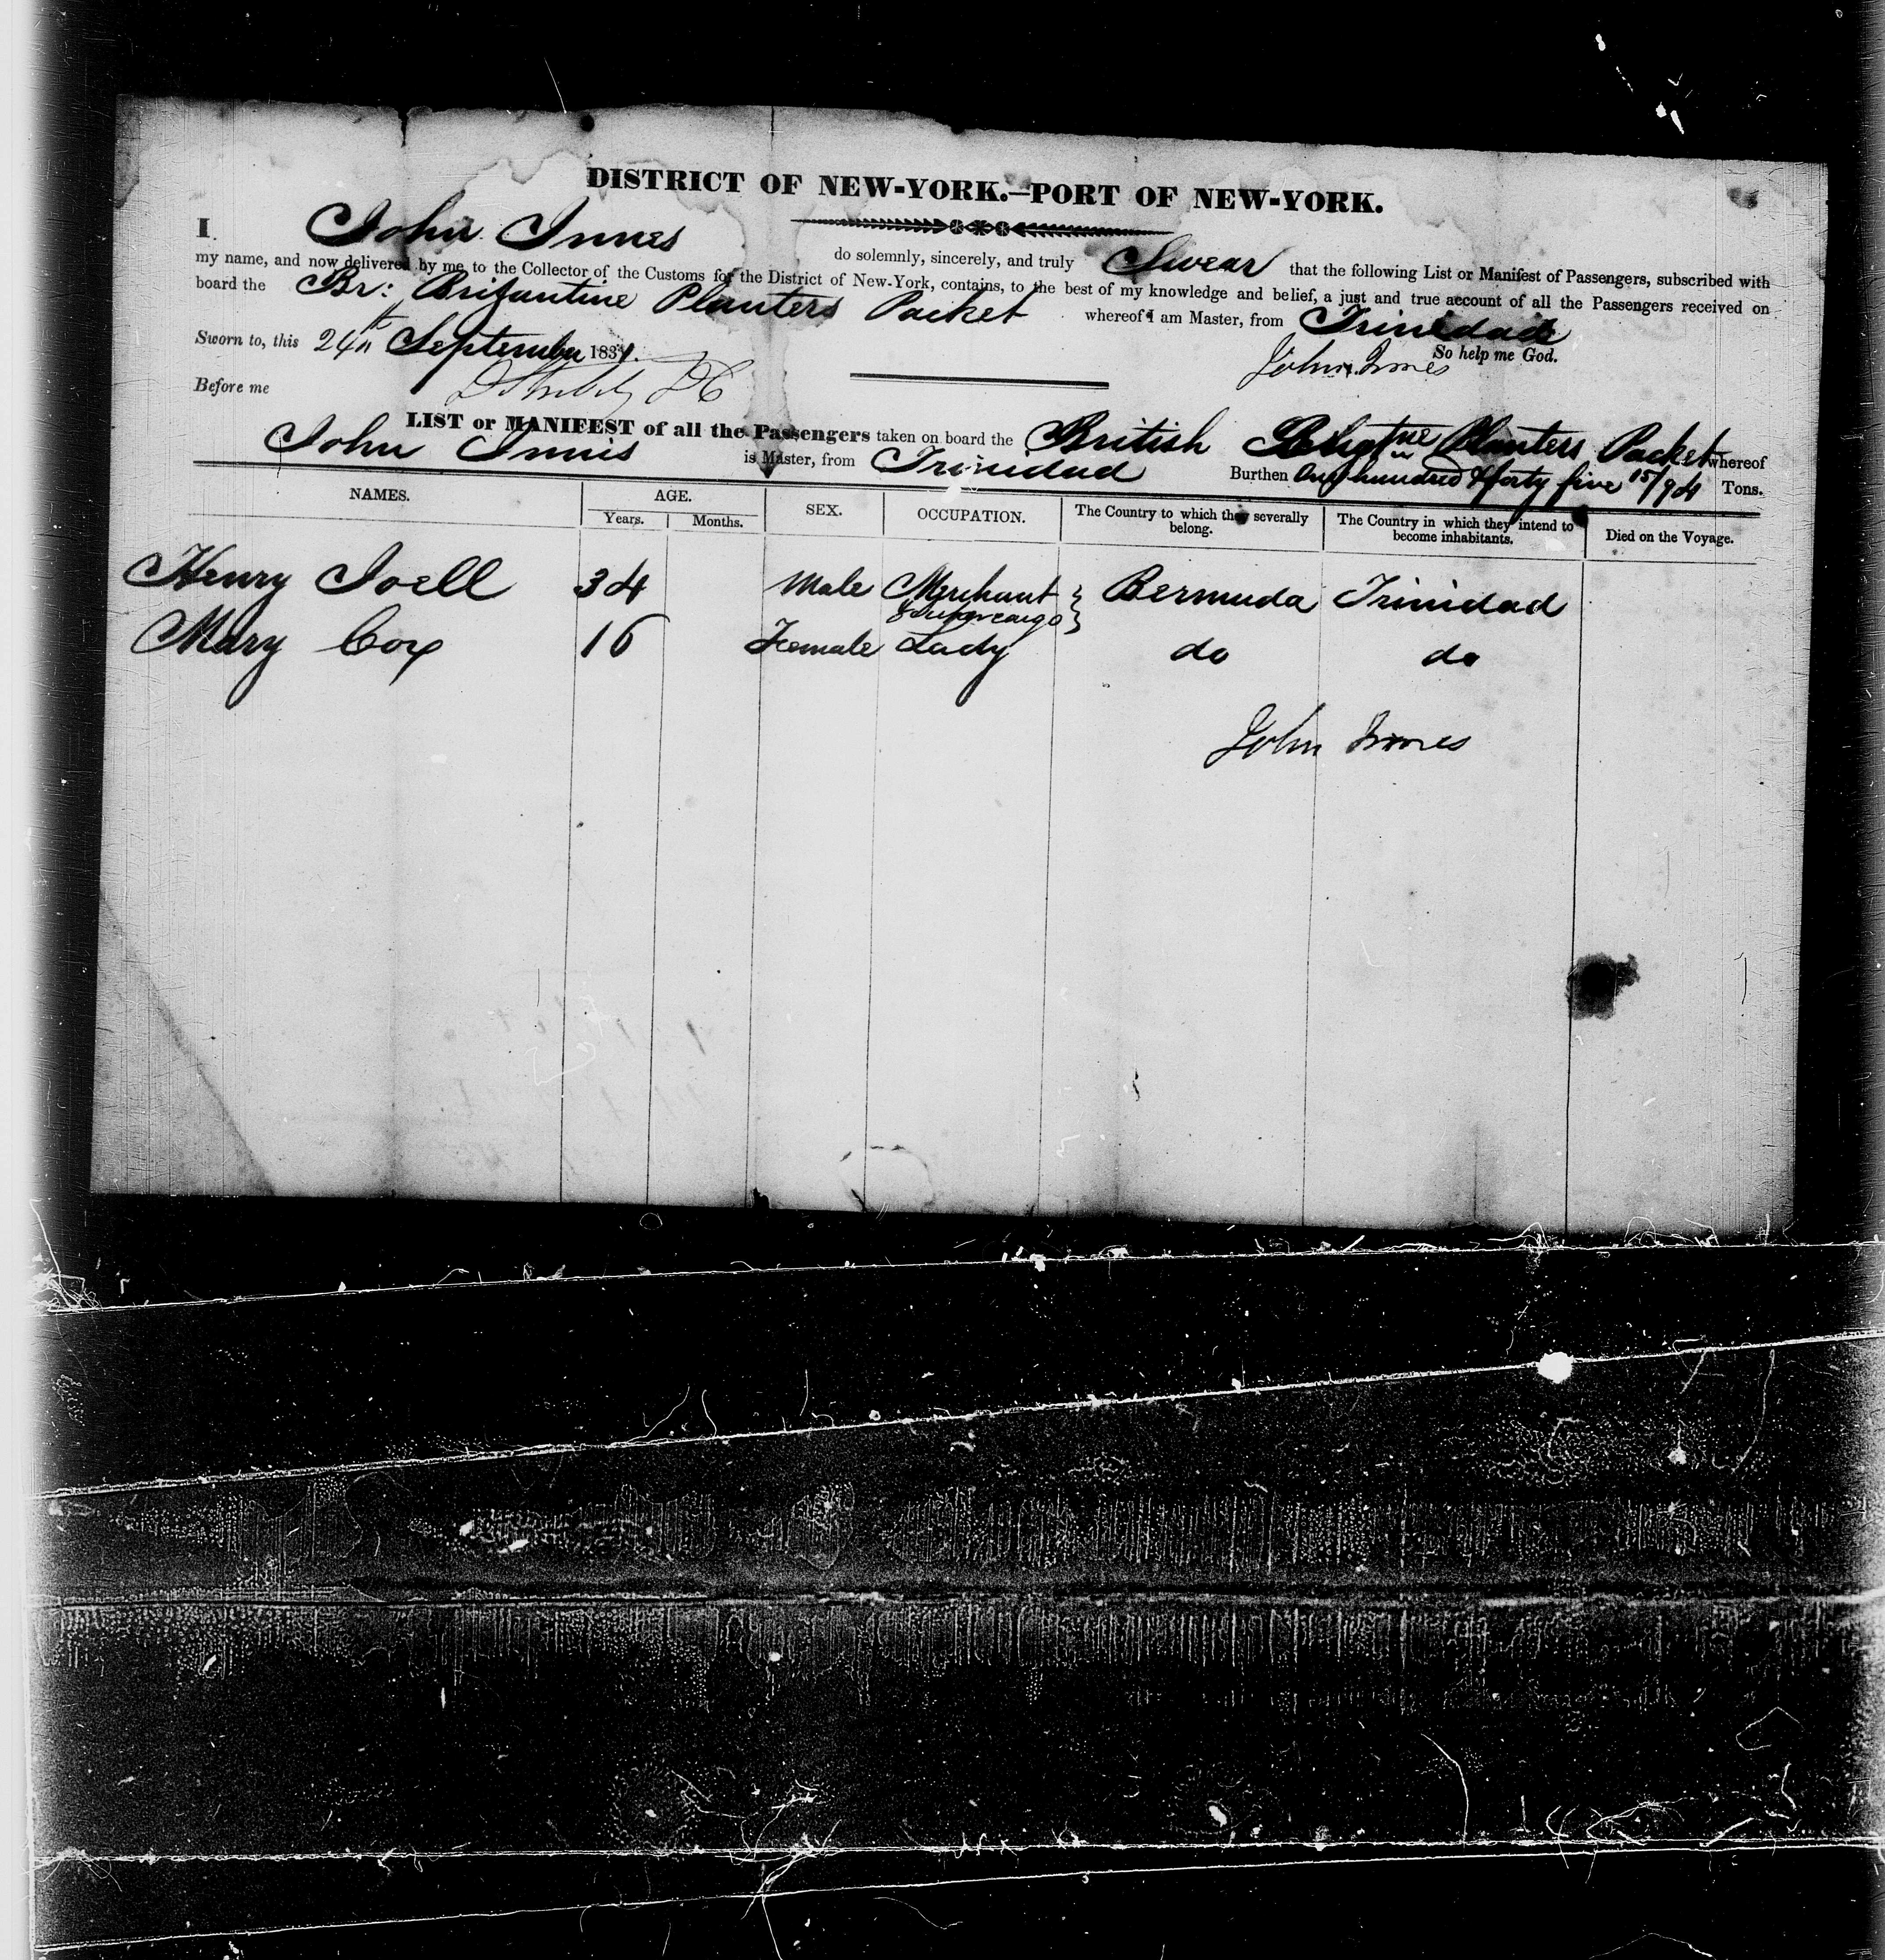 DISTRICT OF NEW-YORK.—PORT OF NEW-YORK.
I John Innes do solemnly, sincerely, and truly Swear that the following List or Manifest of Passengers, subscribed with
my name, and now delivered by me to the Collector of the Customs for the District of New-York, contains, to the best of my knowledge and belief, a just and true account of all the Passengers received on
board the Br: Brigantine Planters Packet whereof I am Master, from Trinidad
Sworn to, this 24th September 1831. So help me God.
John Innes
Before me
LIST or MANIFEST of all the Passengers taken on board the British Planters Packet whereof
John Innis is Master, from Trinidad Burthen One hundred & forty five 15/94 Tons.
NAMES. AGE. SEX. OCCUPATION. The Country to which they severally belong. The Country in which they intend to become inhabitants. Died on the Voyage.
Years. Months.
Henry Joell 34 Male Merchant Bermuda Trinidad
& Supercargo
Mary Cox 16 Female Lady do do
John Innes